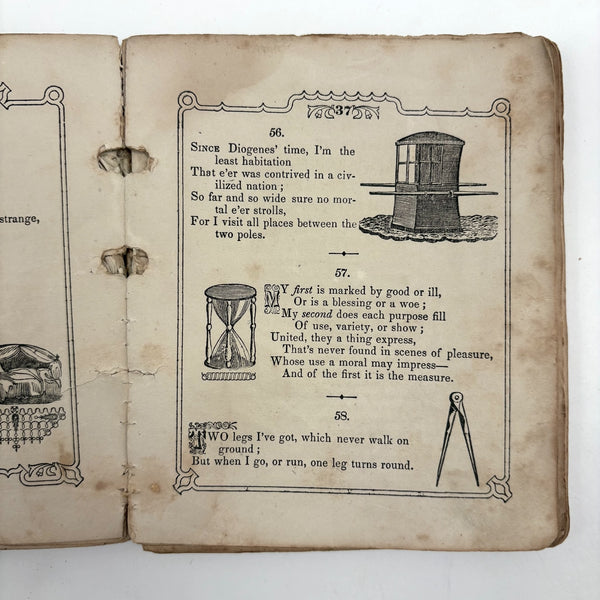 strange,
37
56.
SINCE Diogenes' time, I'm the
least habitation
That e'er was contrived in a civ-
ilized nation ;
So far and so wide sure no mor-
tal e'er strolls,
For I visit all places between the
two poles.
57.
MY first is marked by good or ill,
Or is a blessing or a woe ;
My second does each purpose fill
Of use, variety, or show ;
United, they a thing express,
That's never found in scenes of pleasure,
Whose use a moral may impress—
And of the first it is the measure.
58.
TWO legs I've got, which never walk on
ground ;
But when I go, or run, one leg turns round.